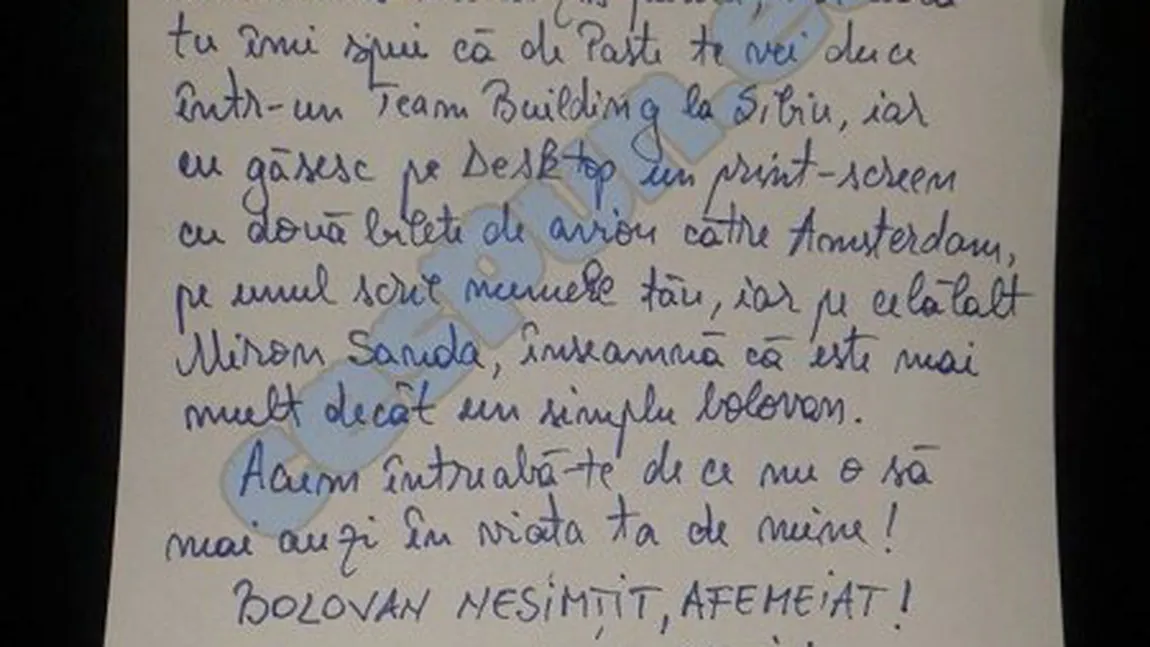 tu îmi spui că de Paste te vei duce
într-un Team Building la Sibiu, iar
eu găsesc pe Desktop un print-screen
cu două bilete de avion către Amsterdam,
pe unul scrie numele tău, iar pe celălalt
Miron Sanda, înseamnă că este mai
mult decât un simplu bolovan.
Acum întreabă-te de ce nu o să
mai auzi în viata ta de mine!
BOLOVAN NESIMȚIT, AFEMEIAT!